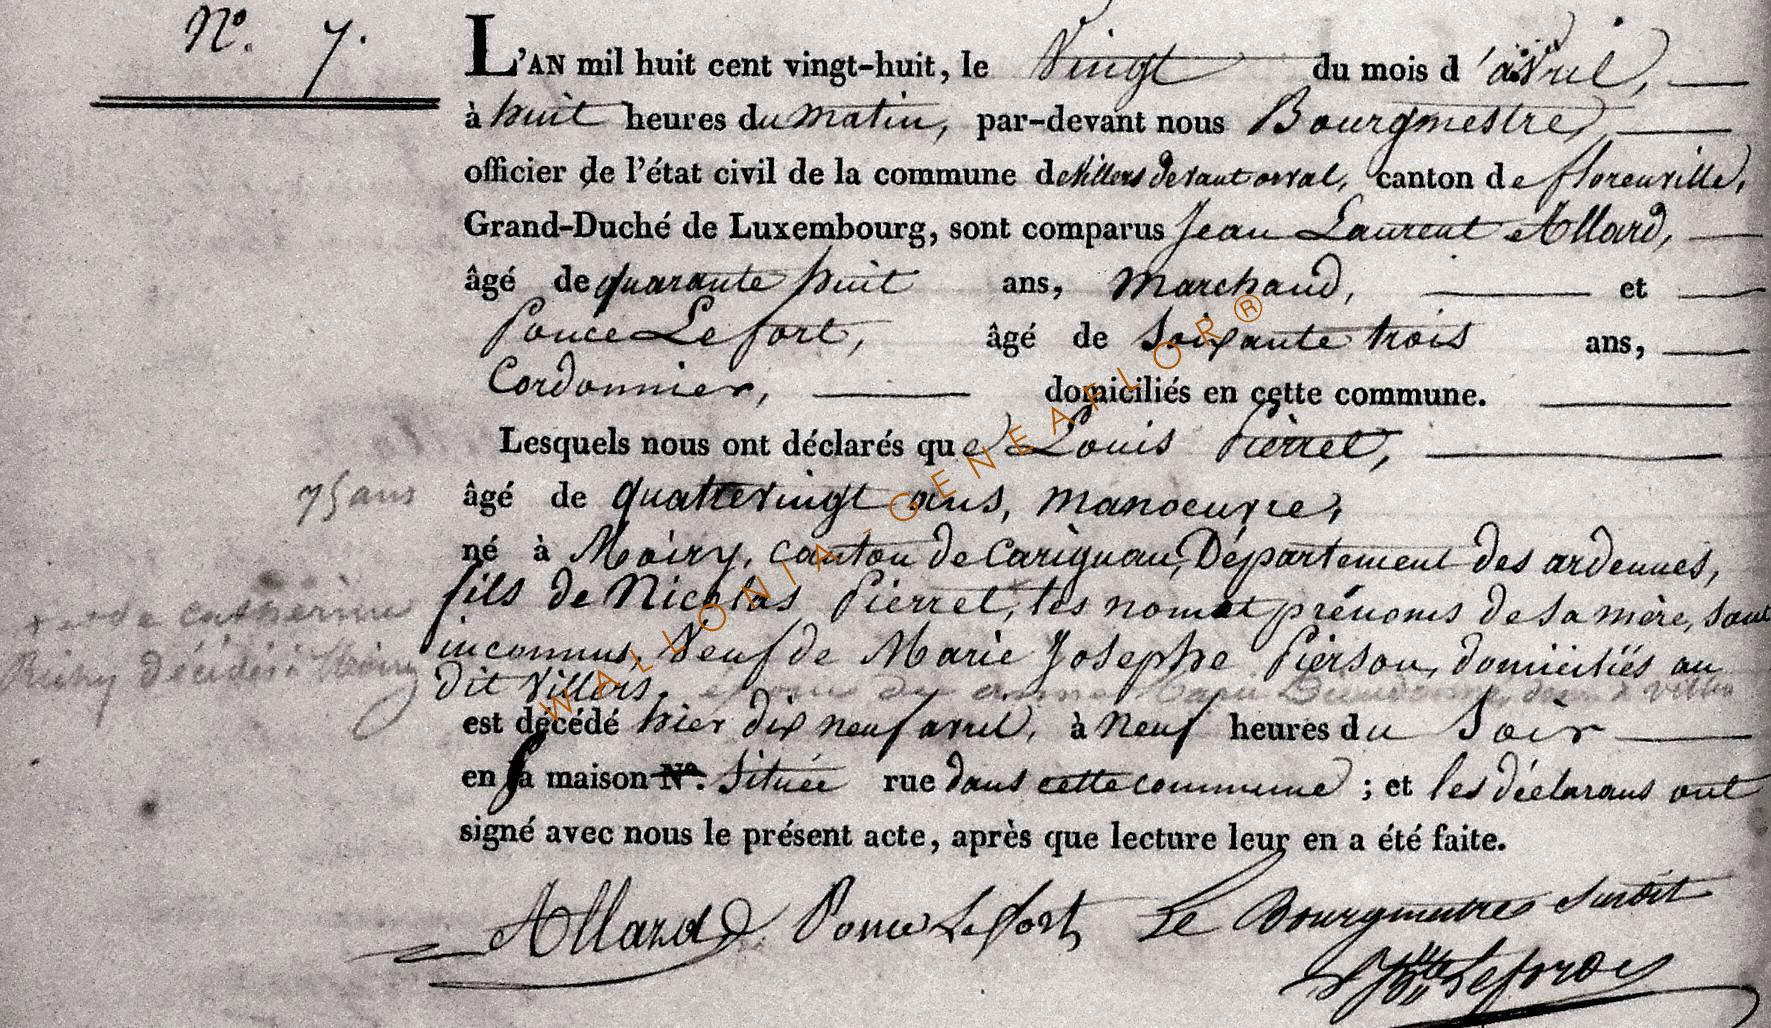 N°. 7.
L'AN mil huit cent vingt-huit, le Vingt du mois d'avril,
à huit heures du Matin, par-devant nous Bourgmestre,
officier de l'état civil de la commune de Villers devant orval, canton de florenville,
Grand-Duché de Luxembourg, sont comparus Jean Laurent Allard,
âgé de quarante huit ans, Marchand, et
Ponce Lefort, âgé de Soixante trois ans,
Cordonnier, domiciliés en cette commune.
Lesquels nous ont déclarés que Louis Pierret,
75 ans
âgé de quatrevingt ans, manoeuvre,
né à Moiry, canton de Carignan, Département des ardennes,
fils de Nicolas Pierret, les nom et prénoms de sa mère, sont
et de catherine
inconnus, Veuf de Marie Josephe Pierson, domiciliés au
décédés à Moiry
dit Villers. époux de anne Marie
est décédé hier dix neuf avril, à Neuf heures du Soir
en sa maison N°. Située rue dans cette commune ; et les déclarans ont
signé avec nous le présent acte, après que lecture leur en a été faite.
Allard Ponce Lefort Le Bourgmestre Susdit
WALLONIA-GENEAFLOR®